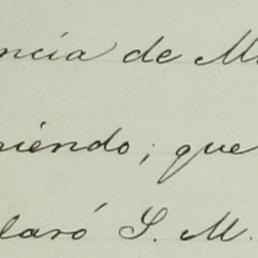 ncia de M
niendo; que
laró S. M.